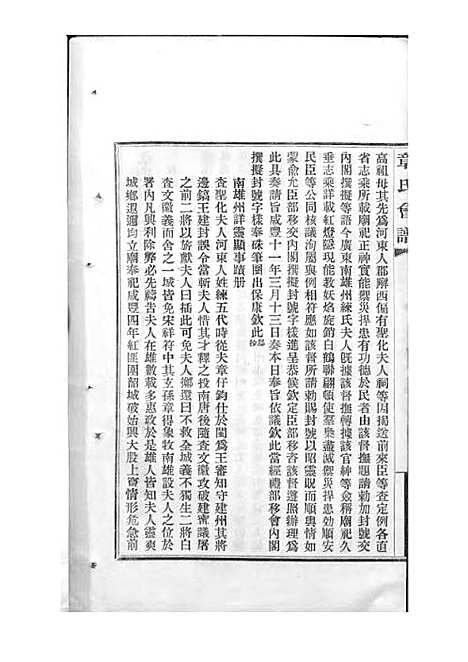 章氏會譜
高祖母其先為河東人郡廨西偏有聖化夫人祠等因揭送前來臣等查定例各直
省志乘所載廟祀正神實能禦災捍患有功德於民者由該督撫題請勅加封號
內閣撰擬等語今廣東南雄州練氏夫人既據該督撫轉據該官紳等僉稱廟祀久
垂志乘詳載紅燈隱現能教妖焰旋銷白鶴聯翩頓使羣柴盡滅禦災捍患功順安
民臣等公同核議洵屬與例相符應如該督所請勅賜封號以昭靈貺而順輿情如
蒙俞允臣部移交內閣撰擬封號字樣進呈恭候欽定臣部移咨該督遵照辦理為
此具奏請旨咸豐十一年三月十三日奏本日奉旨依議欽此當經禮部移會內閣
撰擬封號字樣奉硃筆圈出保康欽此
南雄州詳靈顯事蹟册
查聖化夫人河東人姓練五代時從夫章仔鈞仕於閩為王審知守建州其將
邊鎬王建封誤令當斬夫人惜其才釋之投南唐後隨查文徽攻破建甯議屠
之前二將以旂獻夫人曰插此可免夫人擲還曰不救全城義不獨生二將白
查文徽義而舍之一城皆免宋祥符中其玄孫章得象牧南雄設夫人之位於
署內凡興利除弊必先禱告夫人在雄數載多惠政於是雄人皆知夫人靈爽
城鄉遐邇均立廟奉祀咸豐四年紅匪圍韶城破始興大股上竄情形危急前